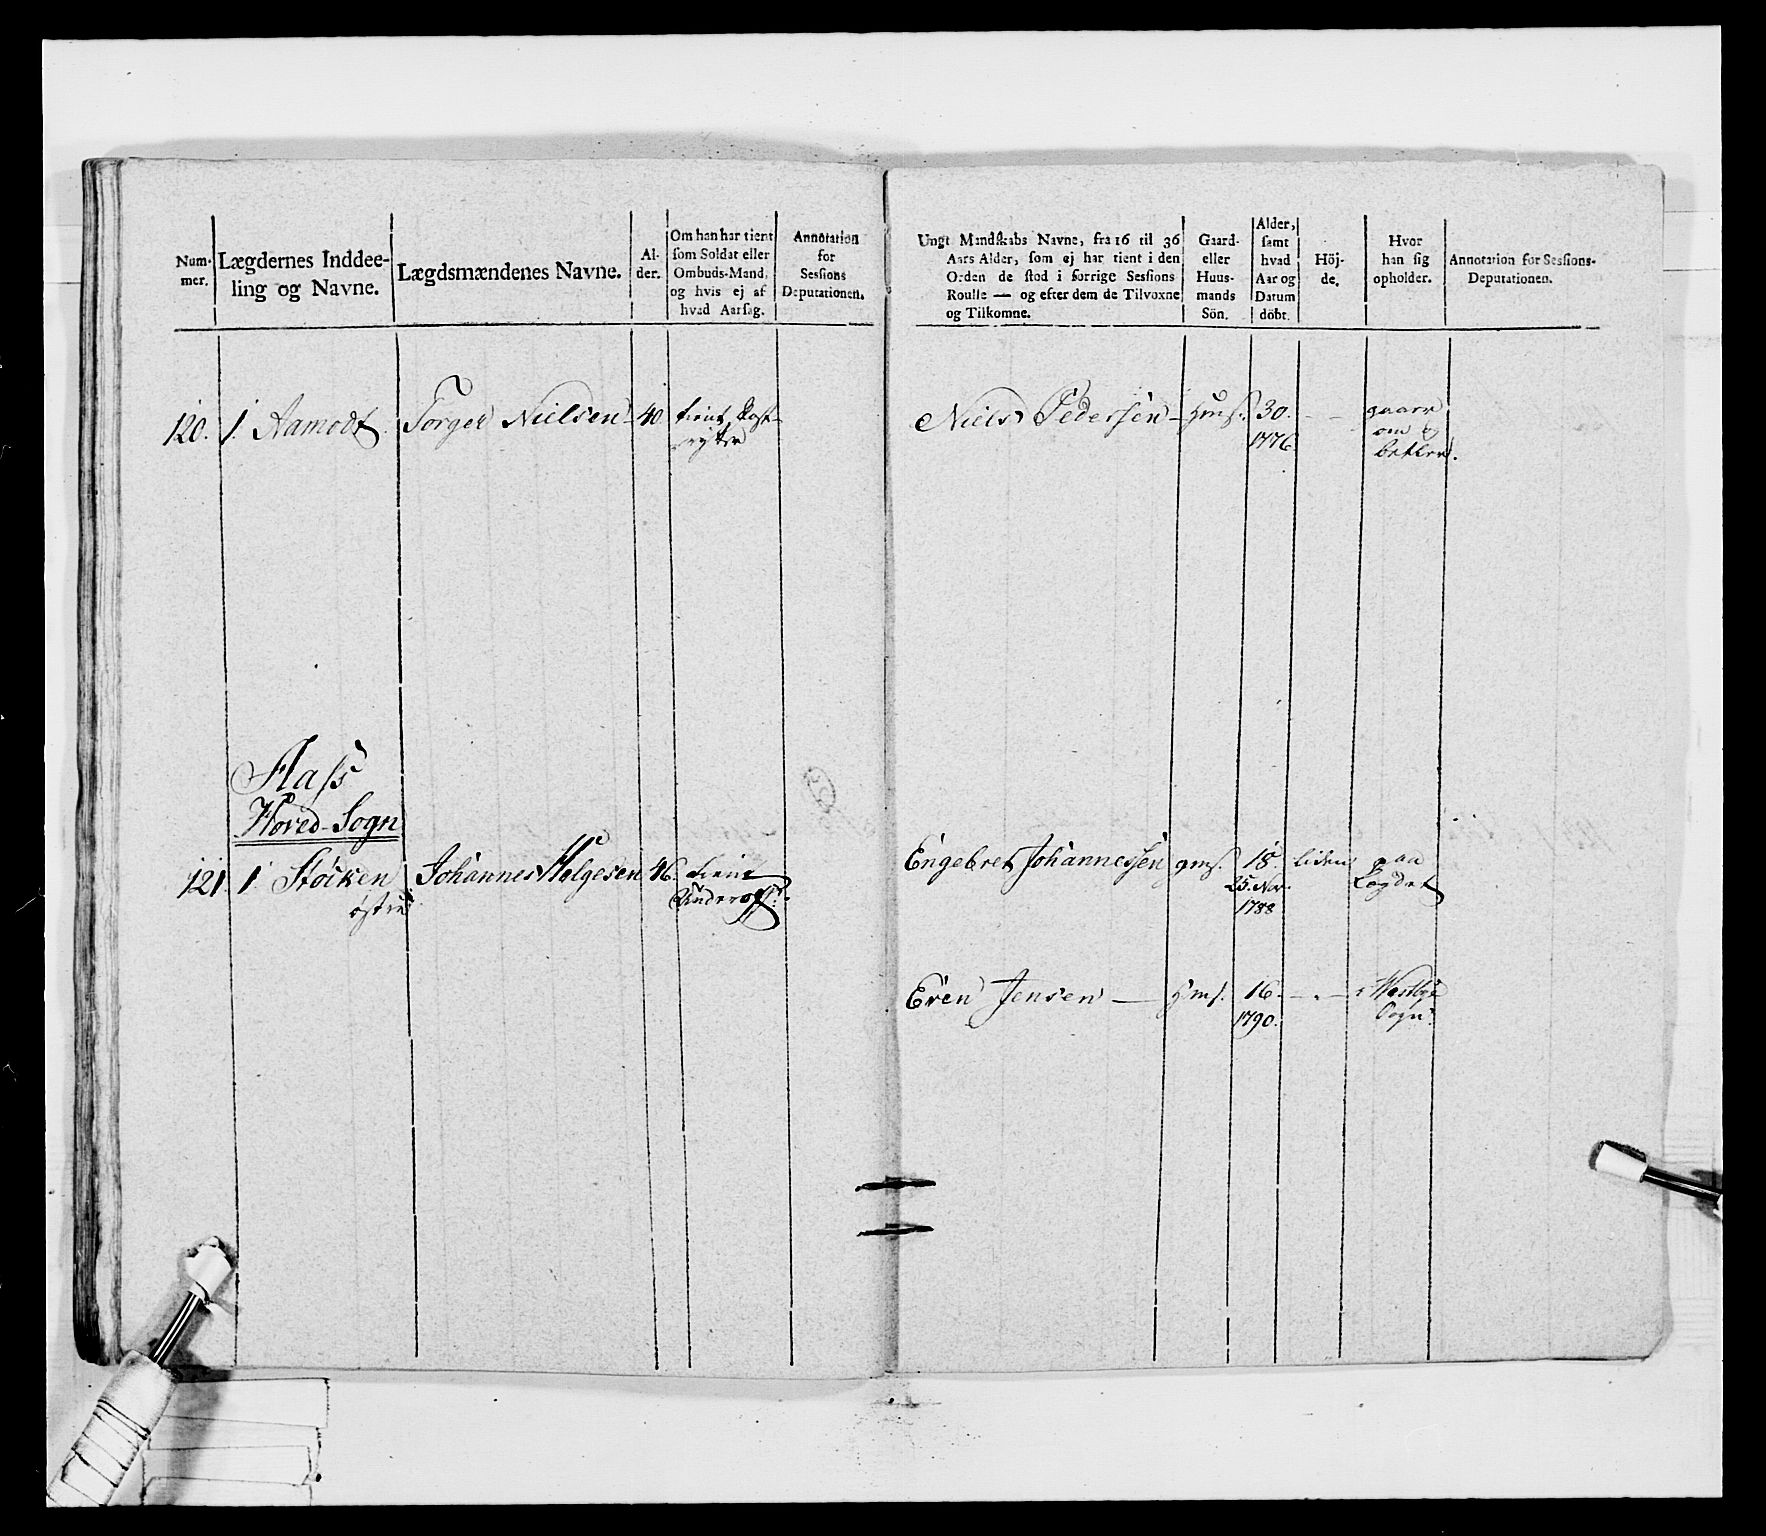 Num-
mer.
Lægdernes Inddee-
ling og Navne.
Lægdsmændenes Navne.
Al-
der.
Om han har tient
som Soldat eller
Ombuds-Mand,
og hvis ej af
hvad Aarsag.
Annotation
for
Sessions
Deputationen.
120. 1. Aamodt. Torger Nielsen 40 tient
Aass
Hoved-Sogn
121. 1. Stöcken Johannes Helgesen 46. tient
østre Underoff:
Ungt Mandskabs Navne, fra 16 til 36
Aars Alder, som ej har tient i den
Orden de stod i forrige Sessions
Roulle — og efter dem de Tilvoxne
og Tilkomne.
Gaard-
eller
Huus-
mands
Sön.
Alder,
samt
hvad
Aar og
Datum
döbt.
Höj-
de.
Hvor
han sig
opholder.
Annotation for Sessions-
Deputationen.
Niels Pedersen — Hms. 30. — — gaaer
1776. om og
betler.
Engebret Johannessen gms. 18 liden paa
25. Nov. Lægdet
1788
Even Jensen — Hms. 16. — — Westbye
1790. Sogn.